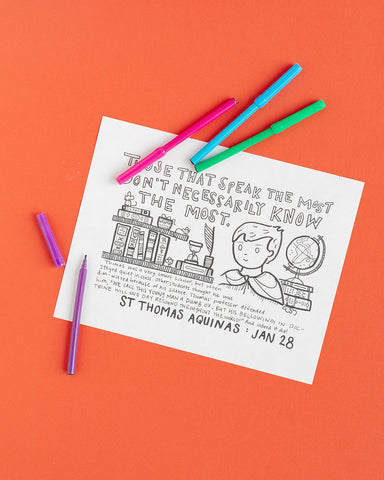 THOSE THAT SPEAK THE MOST
DON'T NECESSARILY KNOW
THE MOST.
Thomas was a very smart scholar, but often
stayed quiet in class. Other students thought he was
dim-witted because of his silence. Thomas' professor defended
him, "WE CALL THIS YOUNG MAN A DUMB OX, BUT HIS BELLOWING IN DOC-
TRINE WILL ONE DAY RESOUND THROUGHOUT THE WORLD!" And indeed it did!
ST THOMAS AQUINAS : JAN 28